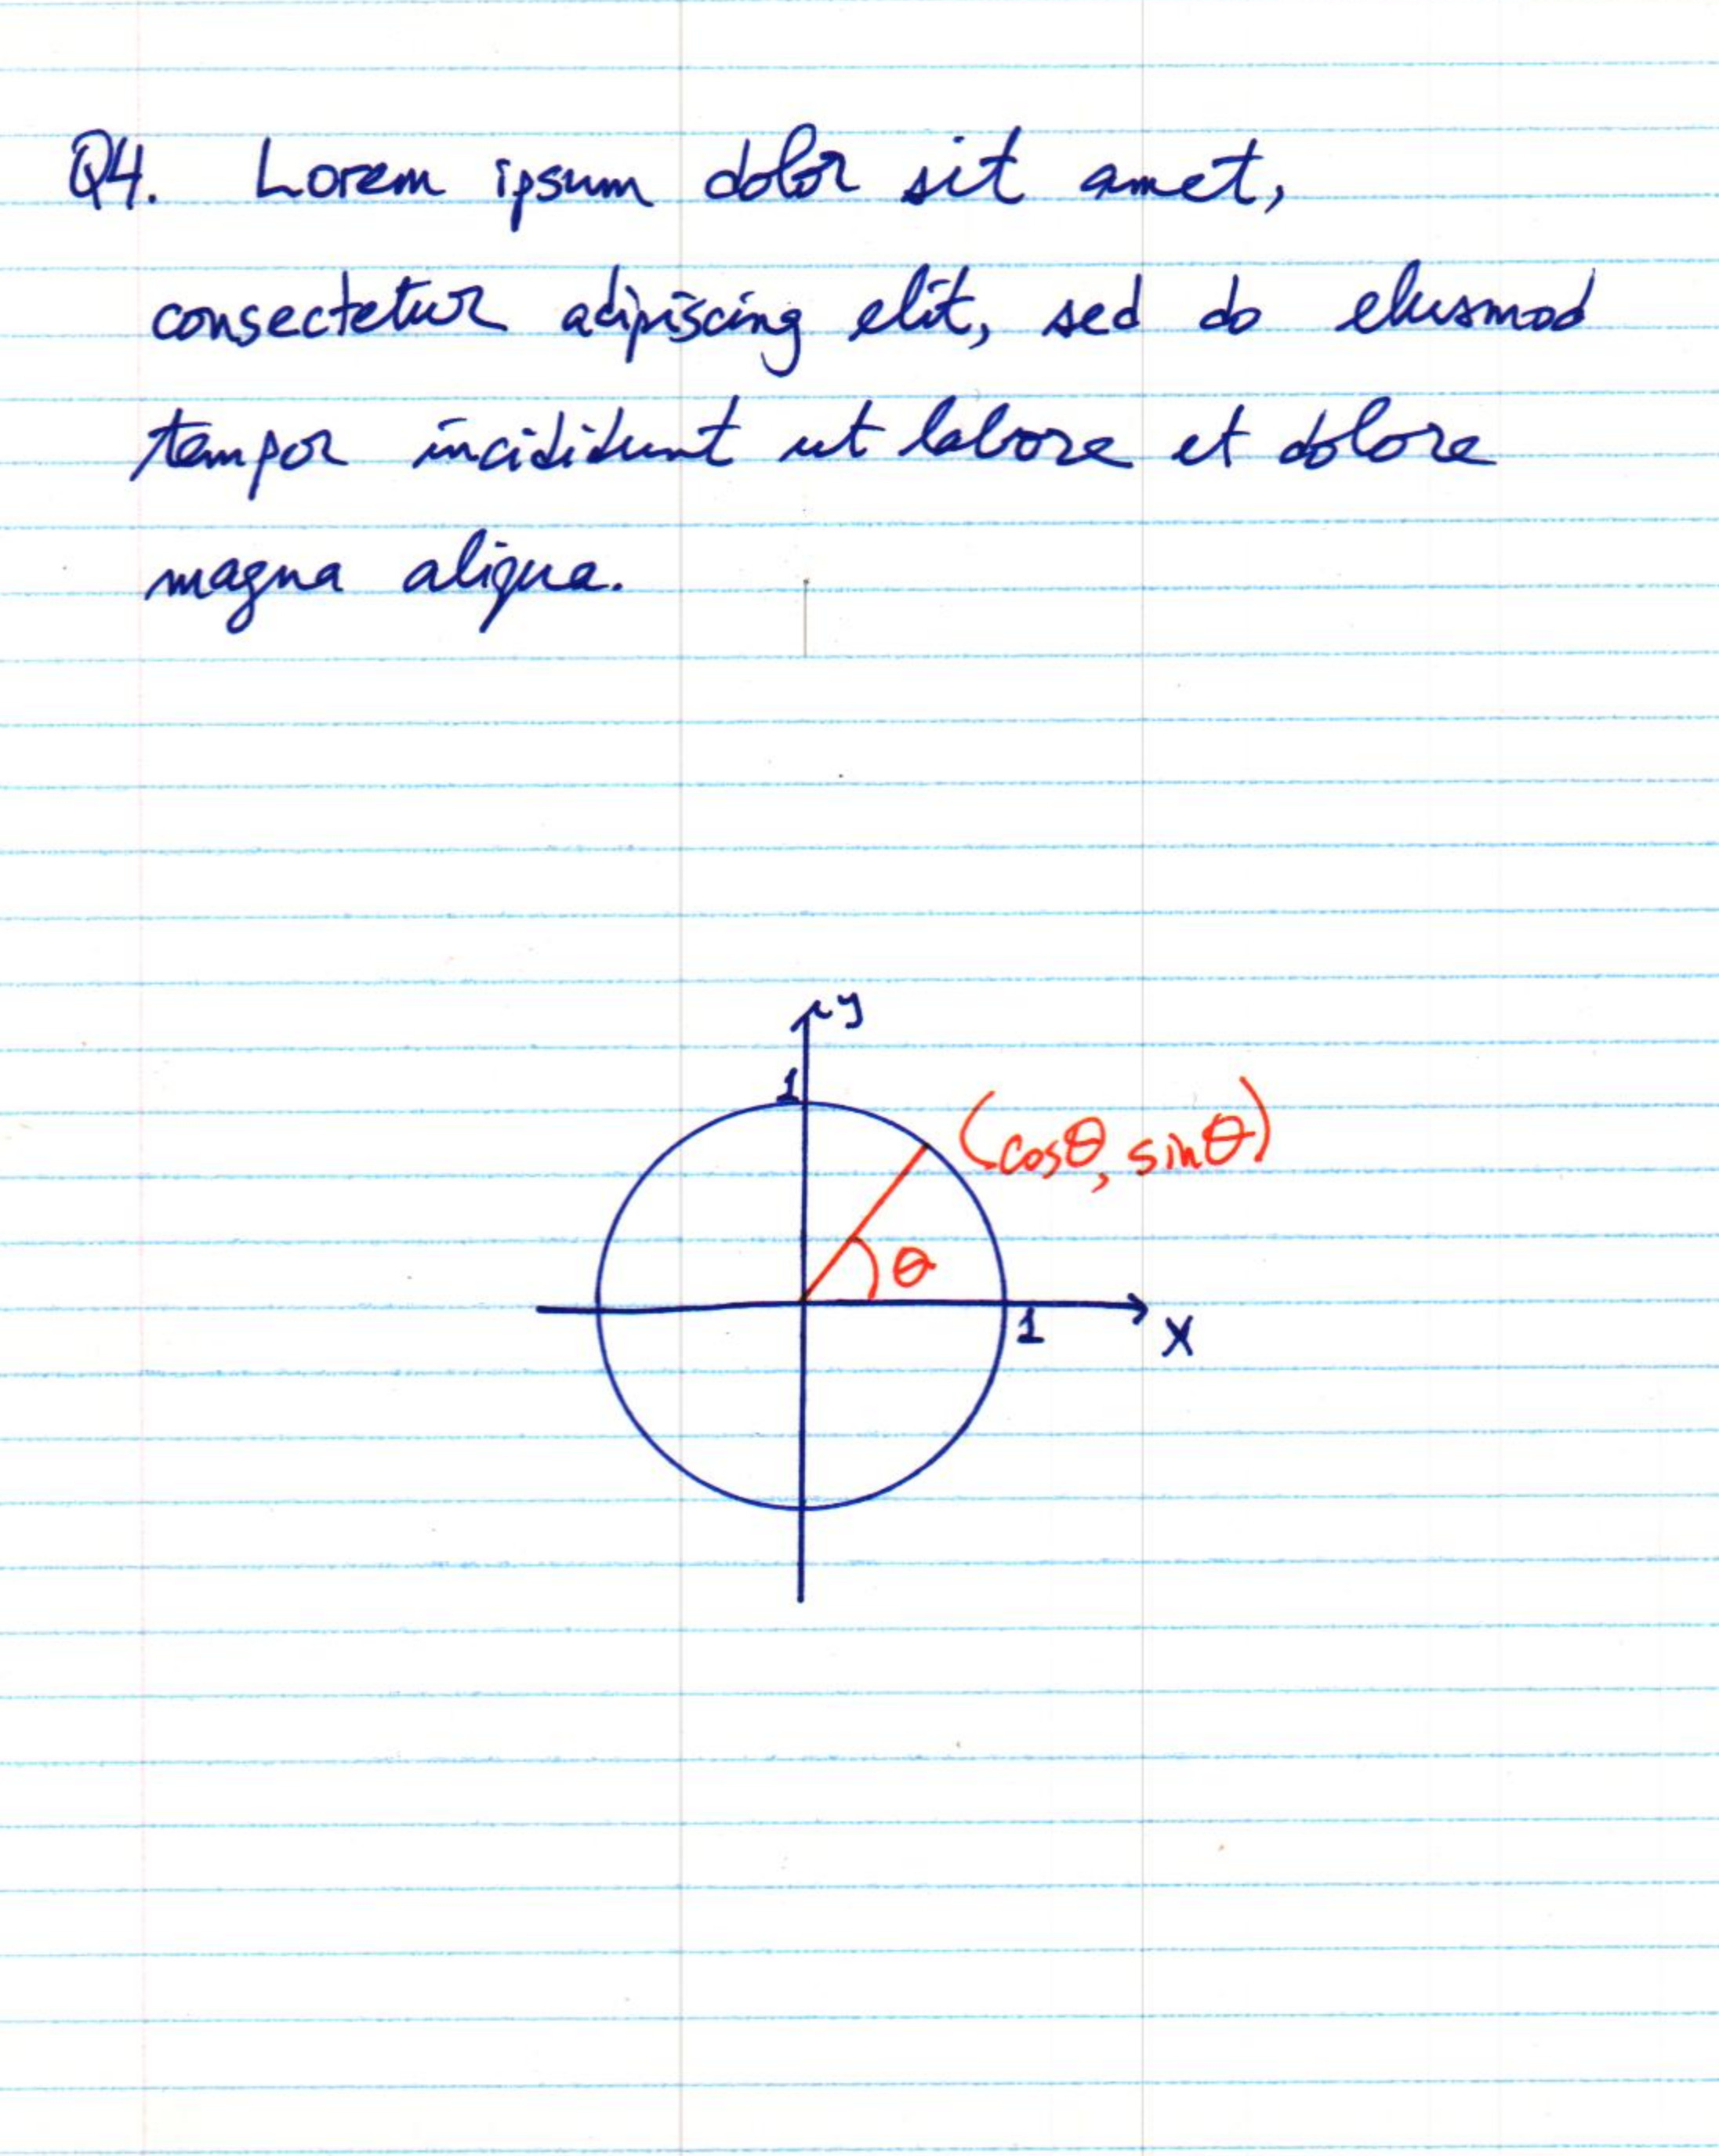 Q4. Lorem ipsum dolor sit amet,
consectetur adipiscing elit, sed do eiusmod
tempor incididunt ut labore et dolore
magna aliqua.
y
1
(cosθ, sinθ)
θ
1
x